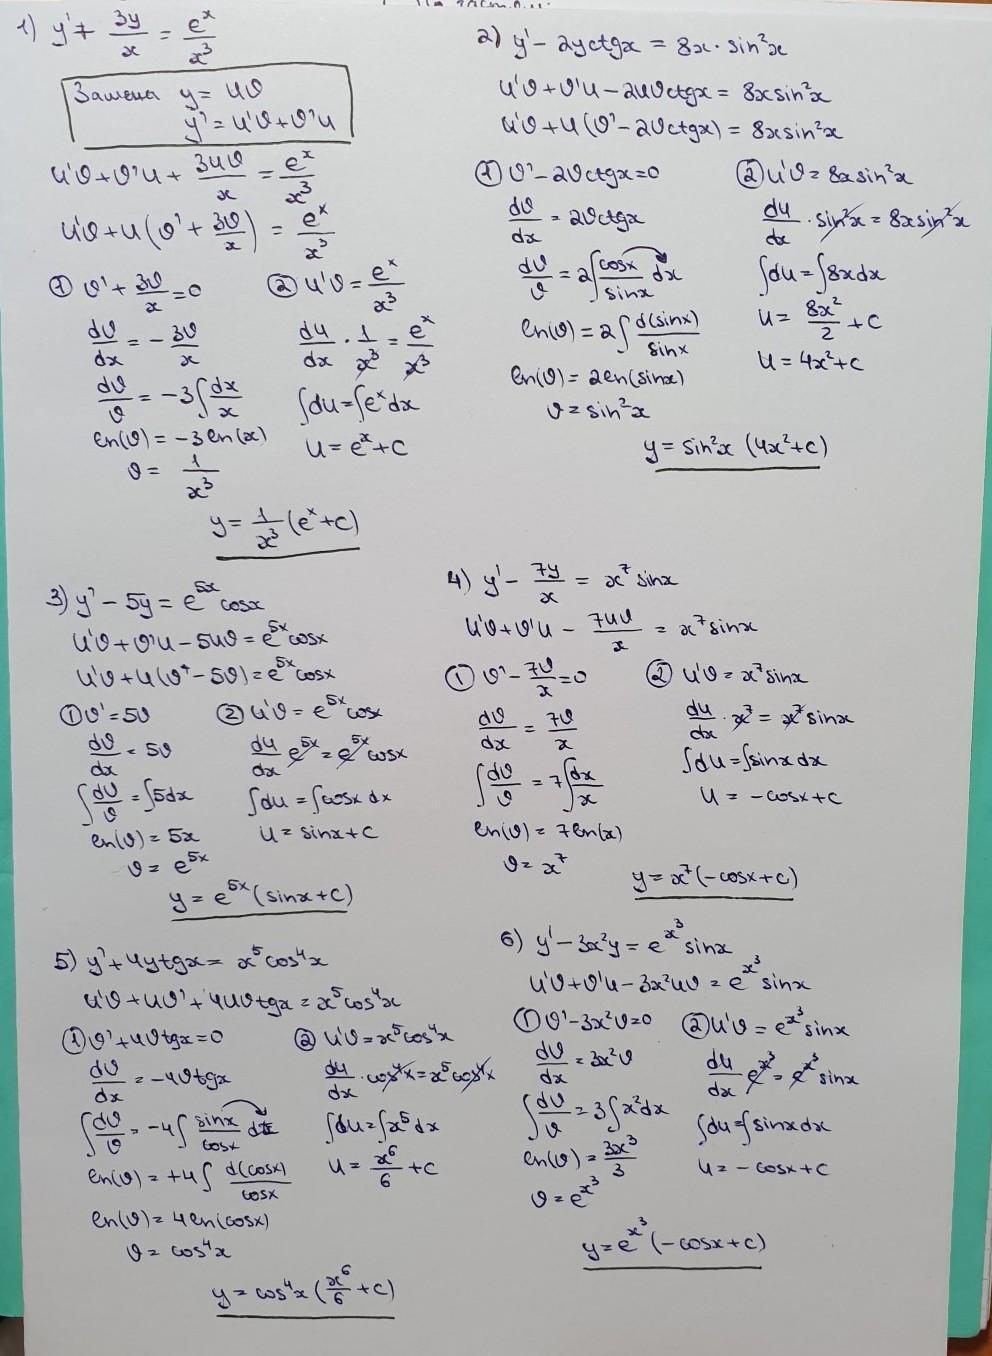 1) y' + 3y/x = e^x/x^3
Замена y = uv
y' = u'v + v'u
u'v + v'u + 3uv/x = e^x/x^3
u'v + u(v' + 3v/x) = e^x/x^3
① v' + 3v/x = 0
dv/dx = -3v/x
dv/v = -3∫dx/x
ln(v) = -3ln(x)
v = 1/x^3
② u'v = e^x/x^3
du/dx · 1/x^3 = e^x/x^3
∫du = ∫e^x dx
u = e^x + c
y = 1/x^3 (e^x + c)
2) y' - 2yctgx = 8x · sin^2x
u'v + v'u - 2uvctgx = 8xsin^2x
u'v + u(v' - 2vctgx) = 8xsin^2x
① v' - 2vctgx = 0
dv/dx = 2vctgx
dv/v = 2∫cosx/sinx dx
ln(v) = 2∫d(sinx)/sinx
ln(v) = 2ln(sinx)
v = sin^2x
② u'v = 8xsin^2x
du/dx · sin^2x = 8xsin^2x
∫du = ∫8xdx
u = 8x^2/2 + c
u = 4x^2 + c
y = sin^2x (4x^2 + c)
3) y' - 5y = e^5x cosx
u'v + v'u - 5uv = e^5x cosx
u'v + u(v' - 5v) = e^5x cosx
① v' = 5v
dv/dx = 5v
∫dv/v = ∫5dx
ln(v) = 5x
v = e^5x
② u'v = e^5x cosx
du/dx e^5x = e^5x cosx
∫du = ∫cosx dx
u = sinx + c
y = e^5x (sinx + c)
4) y' - 7y/x = x^7 sinx
u'v + v'u - 7uv/x = x^7 sinx
① v' - 7v/x = 0
dv/dx = 7v/x
∫dv/v = 7∫dx/x
ln(v) = 7ln(x)
v = x^7
② u'v = x^7 sinx
du/dx · x^7 = x^7 sinx
∫du = ∫sinx dx
u = -cosx + c
y = x^7 (-cosx + c)
5) y' + 4ytgx = x^5 cos^4x
u'v + uv' + 4uvtgx = x^5 cos^4x
① v' + 4vtgx = 0
dv/dx = -4vtgx
∫dv/v = -4∫sinx/cosx dx
ln(v) = +4∫d(cosx)/cosx
ln(v) = 4ln(cosx)
v = cos^4x
② u'v = x^5 cos^4x
du/dx · cos^4x = x^5 cos^4x
∫du = ∫x^5 dx
u = x^6/6 + c
y = cos^4x (x^6/6 + c)
6) y' - 3x^2y = e^x^3 sinx
u'v + v'u - 3x^2uv = e^x^3 sinx
① v' - 3x^2v = 0
dv/dx = 3x^2v
∫dv/v = 3∫x^2dx
ln(v) = 3x^3/3
v = e^x^3
② u'v = e^x^3 sinx
du/dx e^x^3 = e^x^3 sinx
∫du = ∫sinxdx
u = -cosx + c
y = e^x^3 (-cosx + c)